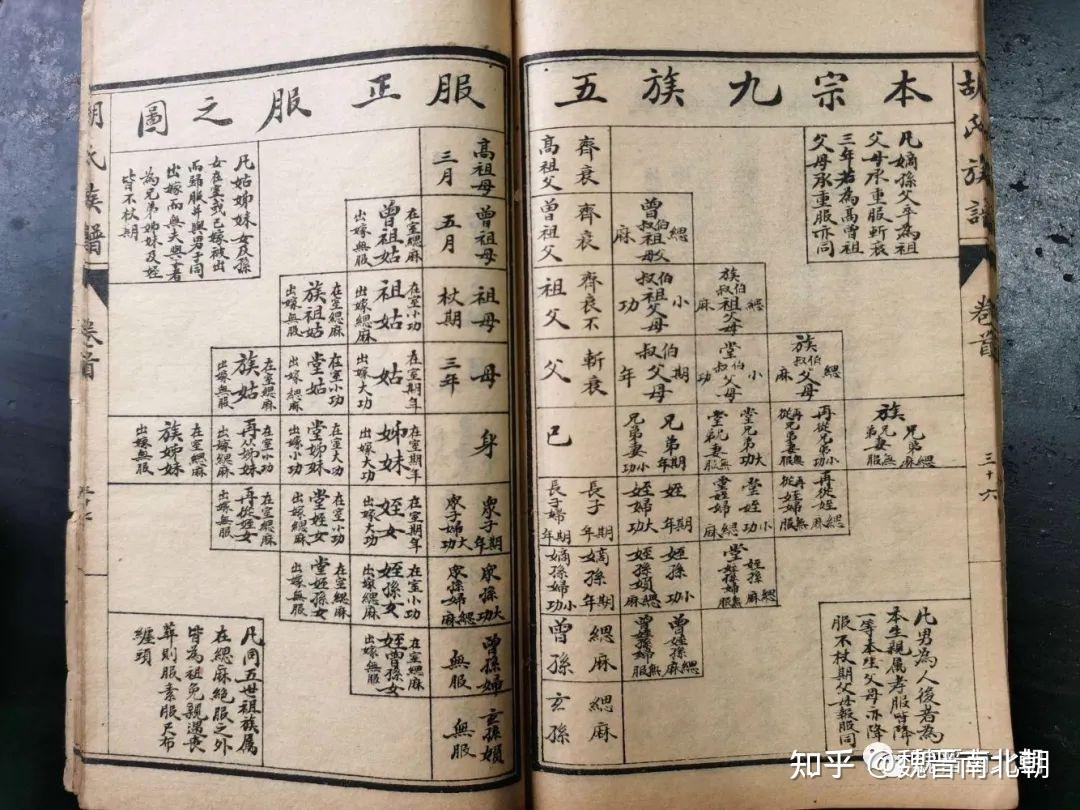 胡氏族譜
卷首
三十六
本宗九族五
服正服之圖
凡嫡孫父卒為祖
父母承重服斬衰
三年若為高曾祖
父母承重服亦同
齊衰
高祖父
高祖母
三月
曾伯叔祖父母
緦麻
齊衰
曾祖父
曾祖母
五月
曾祖姑
在室緦麻
出嫁無服
族伯叔祖父母
緦麻
伯叔祖父母
小功
齊衰不
祖父
祖母
杖期
祖姑
在室小功
出嫁緦麻
族祖姑
在室緦麻
出嫁無服
族伯叔父母
緦麻
堂伯叔父母
小功
伯叔父母
期年
斬衰
父
母
三年
姑
在室期年
出嫁大功
堂姑
在室小功
出嫁緦麻
族姑
在室緦麻
出嫁無服
族兄弟緦麻
族兄弟妻無服
再從兄弟小功
再從兄弟妻無服
堂兄弟大功
堂兄弟妻無服
兄弟期年
兄弟妻小功
己
身
姊妹
在室期年
出嫁大功
堂姊妹
在室大功
出嫁小功
再從姊妹
在室小功
出嫁緦麻
族姊妹
在室緦麻
出嫁無服
再從姪緦麻
再從姪婦無服
堂姪小功
堂姪婦緦麻
姪期年
姪婦大功
長子期年
長子婦期年
衆子期年
衆子婦大功
姪女
在室期年
出嫁大功
堂姪女
在室小功
出嫁緦麻
再從姪女
在室緦麻
出嫁無服
堂姪孫緦麻
堂姪孫婦無服
姪孫小功
姪孫婦緦麻
嫡孫期年
嫡孫婦小功
衆孫大功
衆孫婦緦麻
姪孫女
在室小功
出嫁緦麻
堂姪孫女
在室緦麻
出嫁無服
曾姪孫緦麻
曾姪孫婦無服
緦麻
曾孫
曾孫婦
無服
姪曾孫女
在室緦麻
出嫁無服
緦麻
玄孫
玄孫婦
無服
凡男為人後者為
本生親属孝服皆降
一等本生父母亦降
服不杖期父母報服同
凡姑姊妹女及孫
女在室或已嫁被出
而歸服并與男子同
出嫁而無夫與子者
為兄弟姊妹及姪
皆不杖期
凡同五世祖族属
在緦麻絕服之外
皆為袒免親遇喪
葬則服素服尺布
纏頭
胡氏族譜
卷首
知乎 @魏晋南北朝